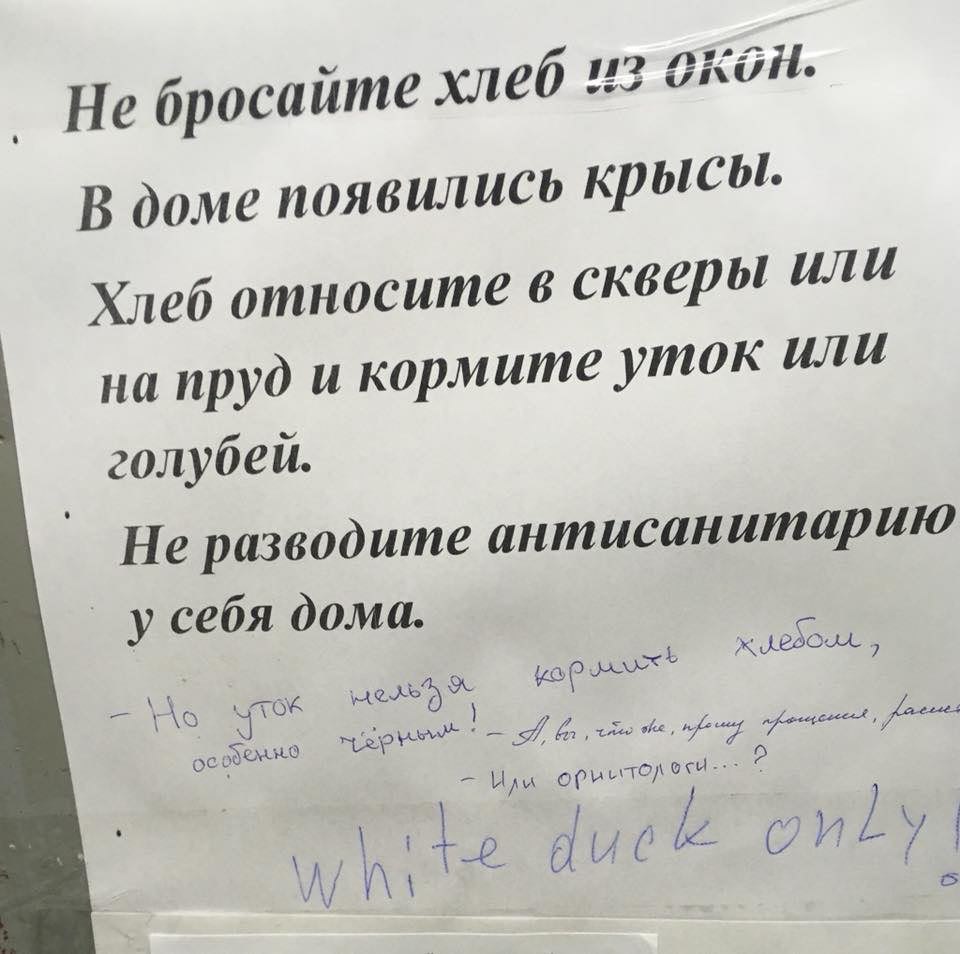 Не бросайте хлеб из окон.
В доме появились крысы.
Хлеб относите в скверы или
на пруд и кормите уток или
голубей.
Не разводите антисанитарию
у себя дома.
- Но уток нельзя кормить хлебом,
особенно чёрным!
- А, вы, что же, прошу прощения,
- Или орнитологи...?
white duck only!